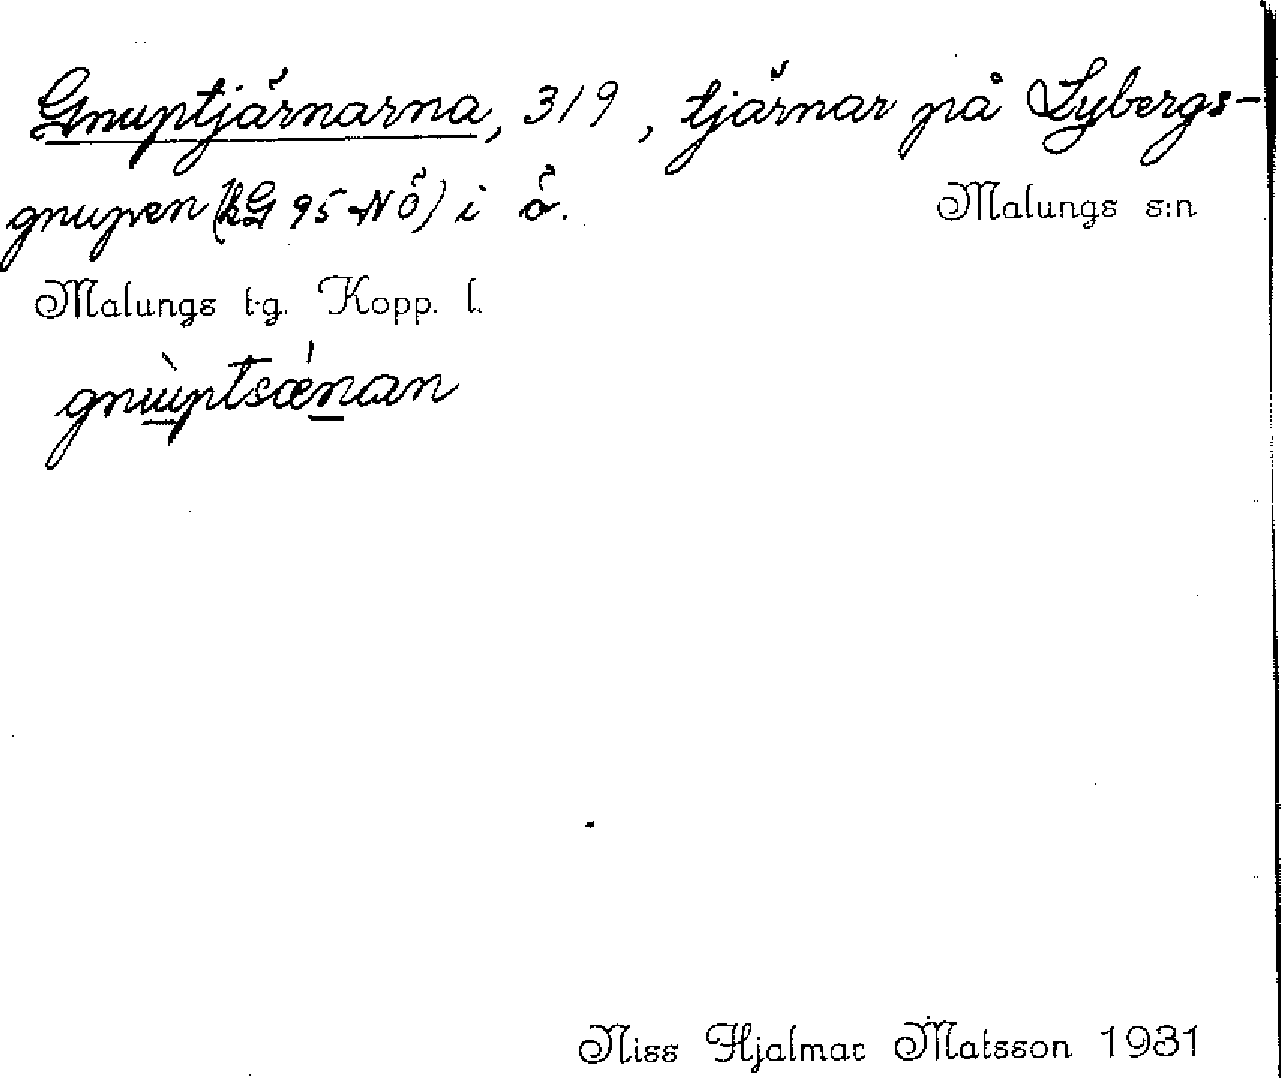 Gnuptjärnarna, 319, tjärnar på Lybergs-
gnupen (kG 95 NÖ) i ö.
Malungs s:n
Malungs tg. Kopp. l.
gnùptsǽnan
Niss Hjalmar Matsson 1931